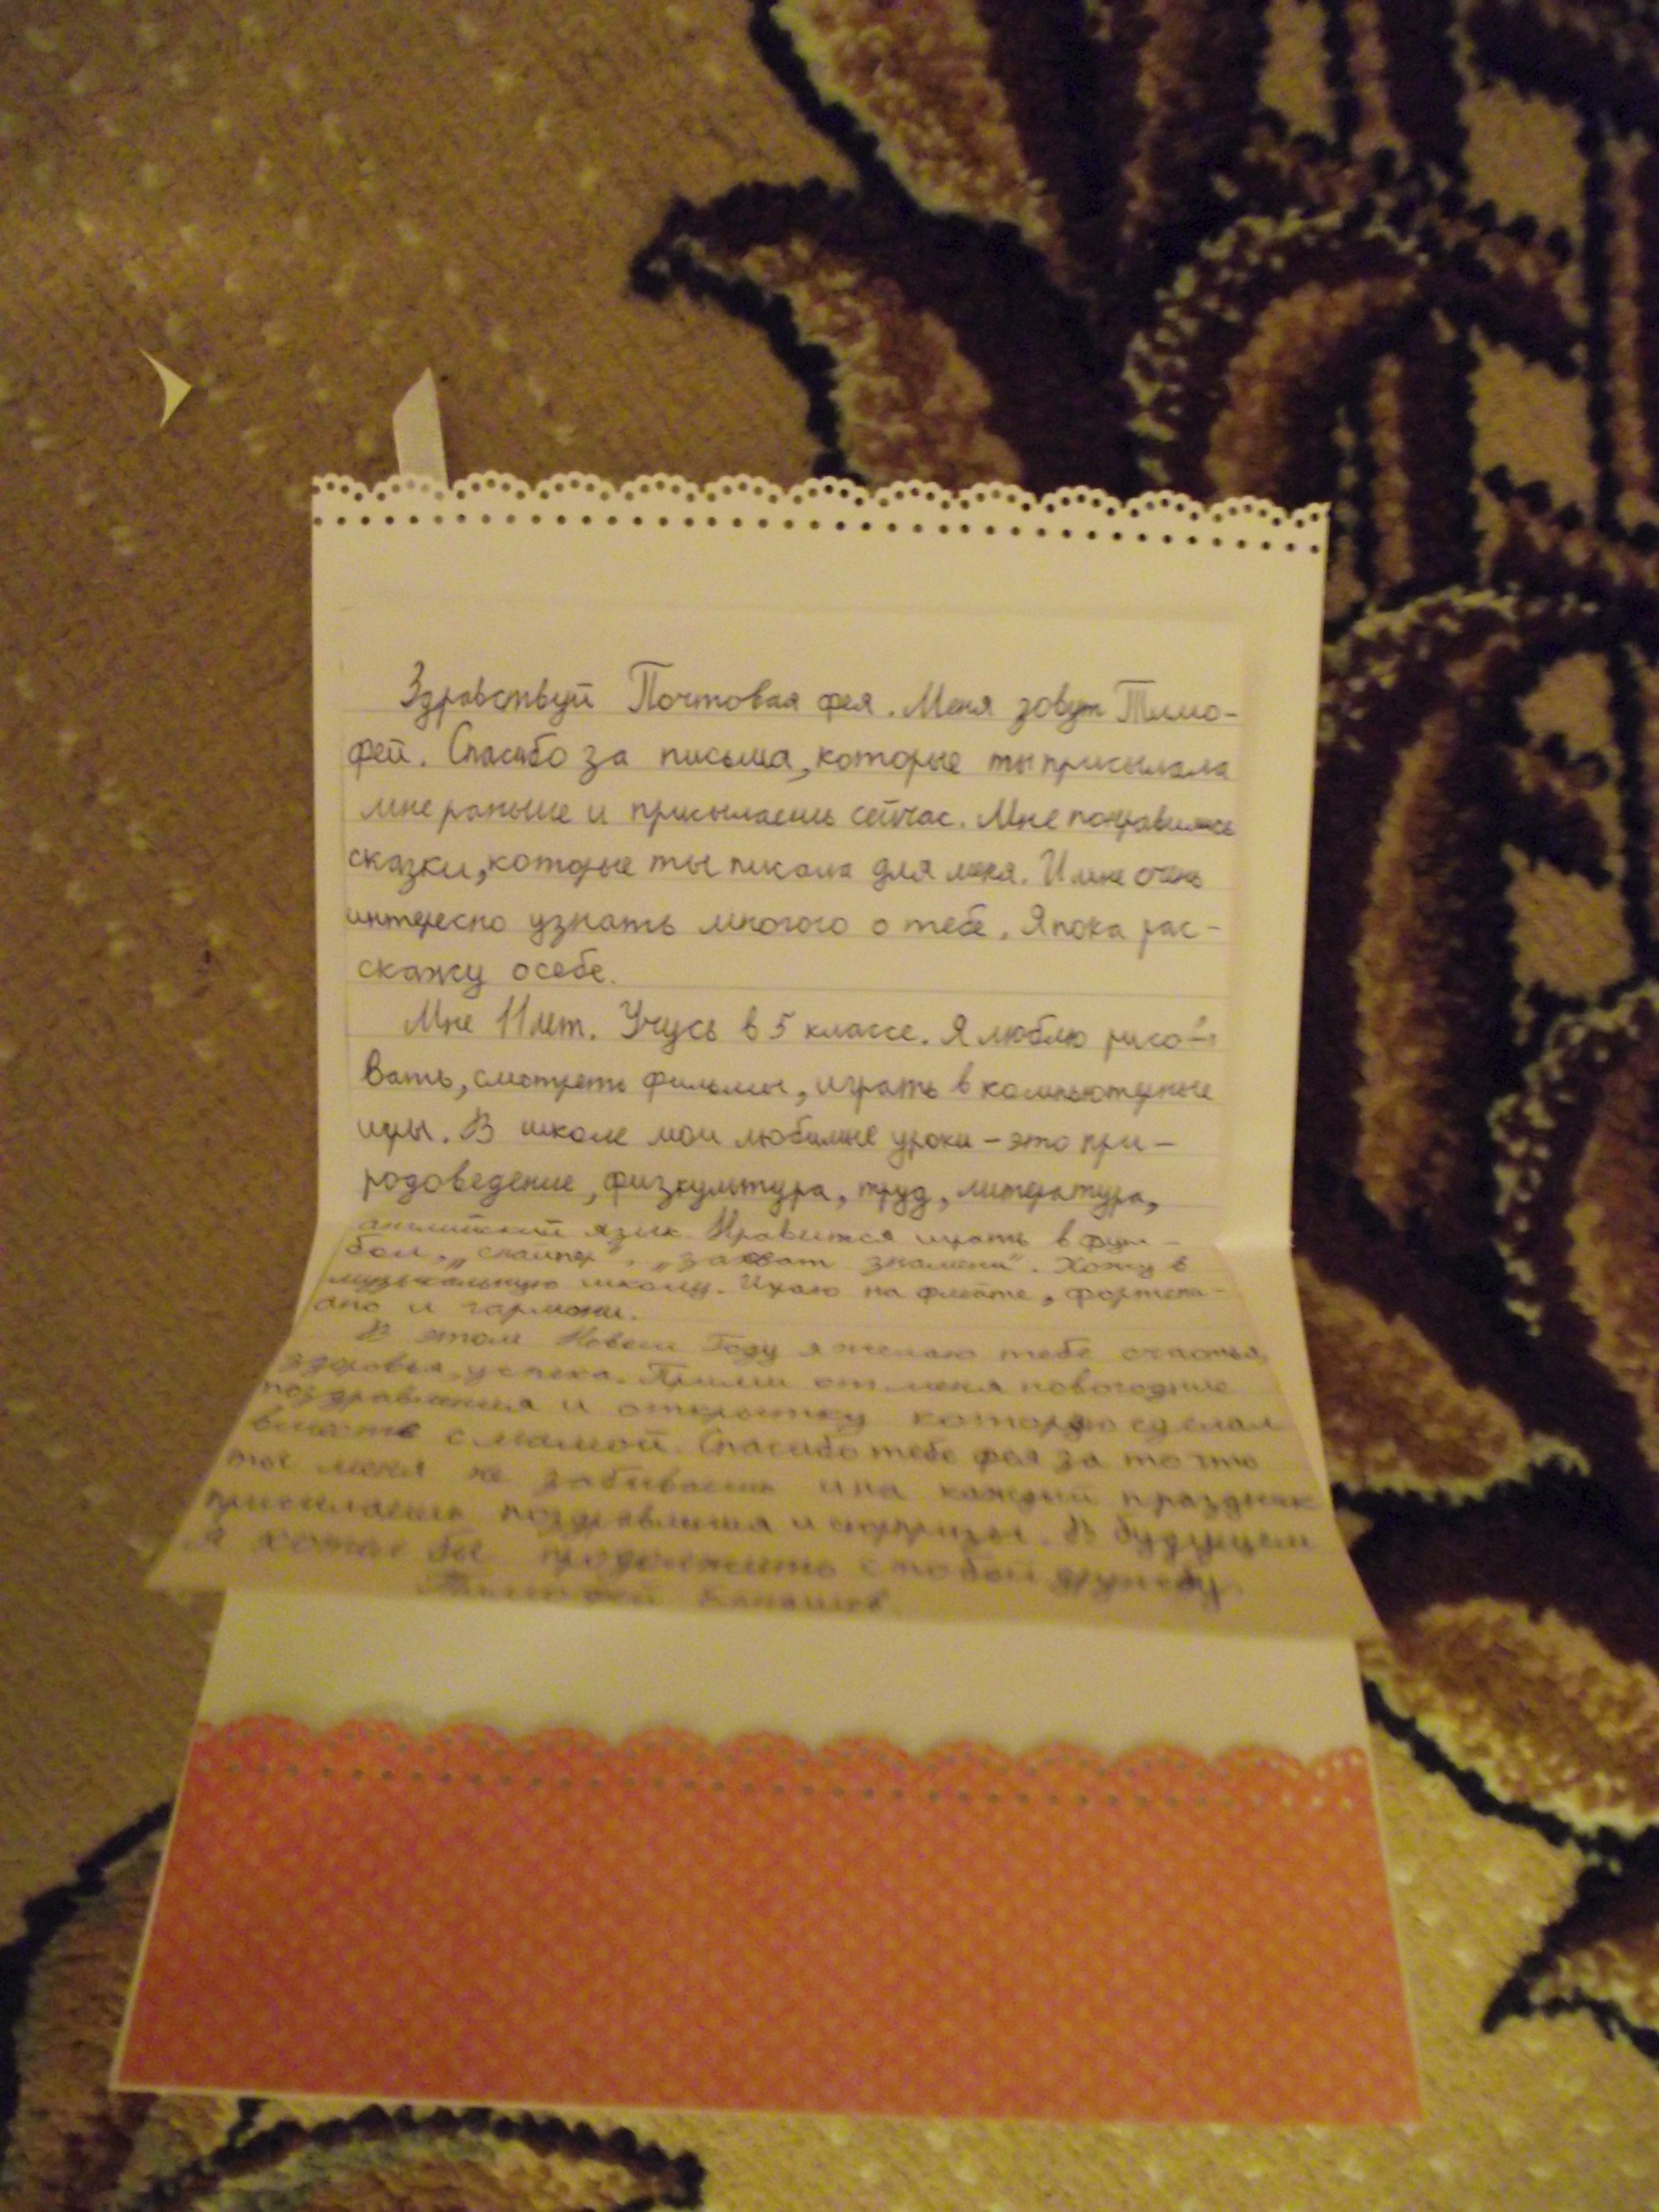 Здравствуй Почтовая фея. Меня зовут Тимо-
фей. Спасибо за письма, которые ты присылала
мне раньше и присылаешь сейчас. Мне понравились
сказки, которые ты писала для меня. И мне очень
интересно узнать много о тебе. Я пока рас-
скажу о себе.
Мне 11 лет. Учусь в 5 классе. Я люблю рисо-
вать, смотреть фильмы, играть в компьютерные
игры. В школе мои любимые уроки - это при-
родоведение, физкультура, труд, литература,
английский язык. Нравится играть в фут-
бол, „снайпер", „захват знамени". Хожу в
музыкальную школу. Играю на флейте, фортепи-
ано и гармони.
В этом Новом Году я желаю тебе счастья,
здоровья, успеха. Прими от меня новогодние
поздравления и открытку которую сделал
вместе с мамой. Спасибо тебе фея за то что
ты меня не забываешь и на каждый праздник
присылаешь поздравления и сюрпризы. В будущем
я хотел бы продолжить с тобой дружбу.
Тимофей